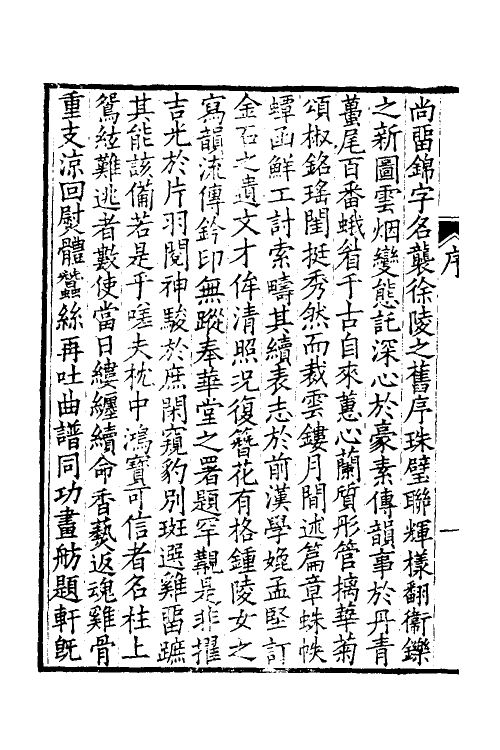 尚畱錦字名襲徐陵之舊序珠璧聯輝樣翻衞鑠
之新圖雲烟變態託深心於豪素傳韻事於丹青
蠆尾百番蛾眉千古自來蕙心蘭質彤管摛華菊
頌椒銘瑤閨挺秀然而裁雲鏤月閒述篇章蛛帙
蟫函鮮工討索疇其續表志於前漢學媲孟堅訂
金石之遺文才侔清照況復簪花有格鍾陵女之
寫韻流傳鈐印無蹤奉華堂之署題罕覯是非擢
吉光於片羽閱神駿於庶閑窺豹別斑選雞畱蹠
其能該備若是乎嗟夫枕中鴻寶可信者名柱上
鴛絃難逃者數使當日縷纏續命香爇返魂雞骨
重支涼回熨體蠶絲再吐曲譜同功畫舫題軒旣
序
一